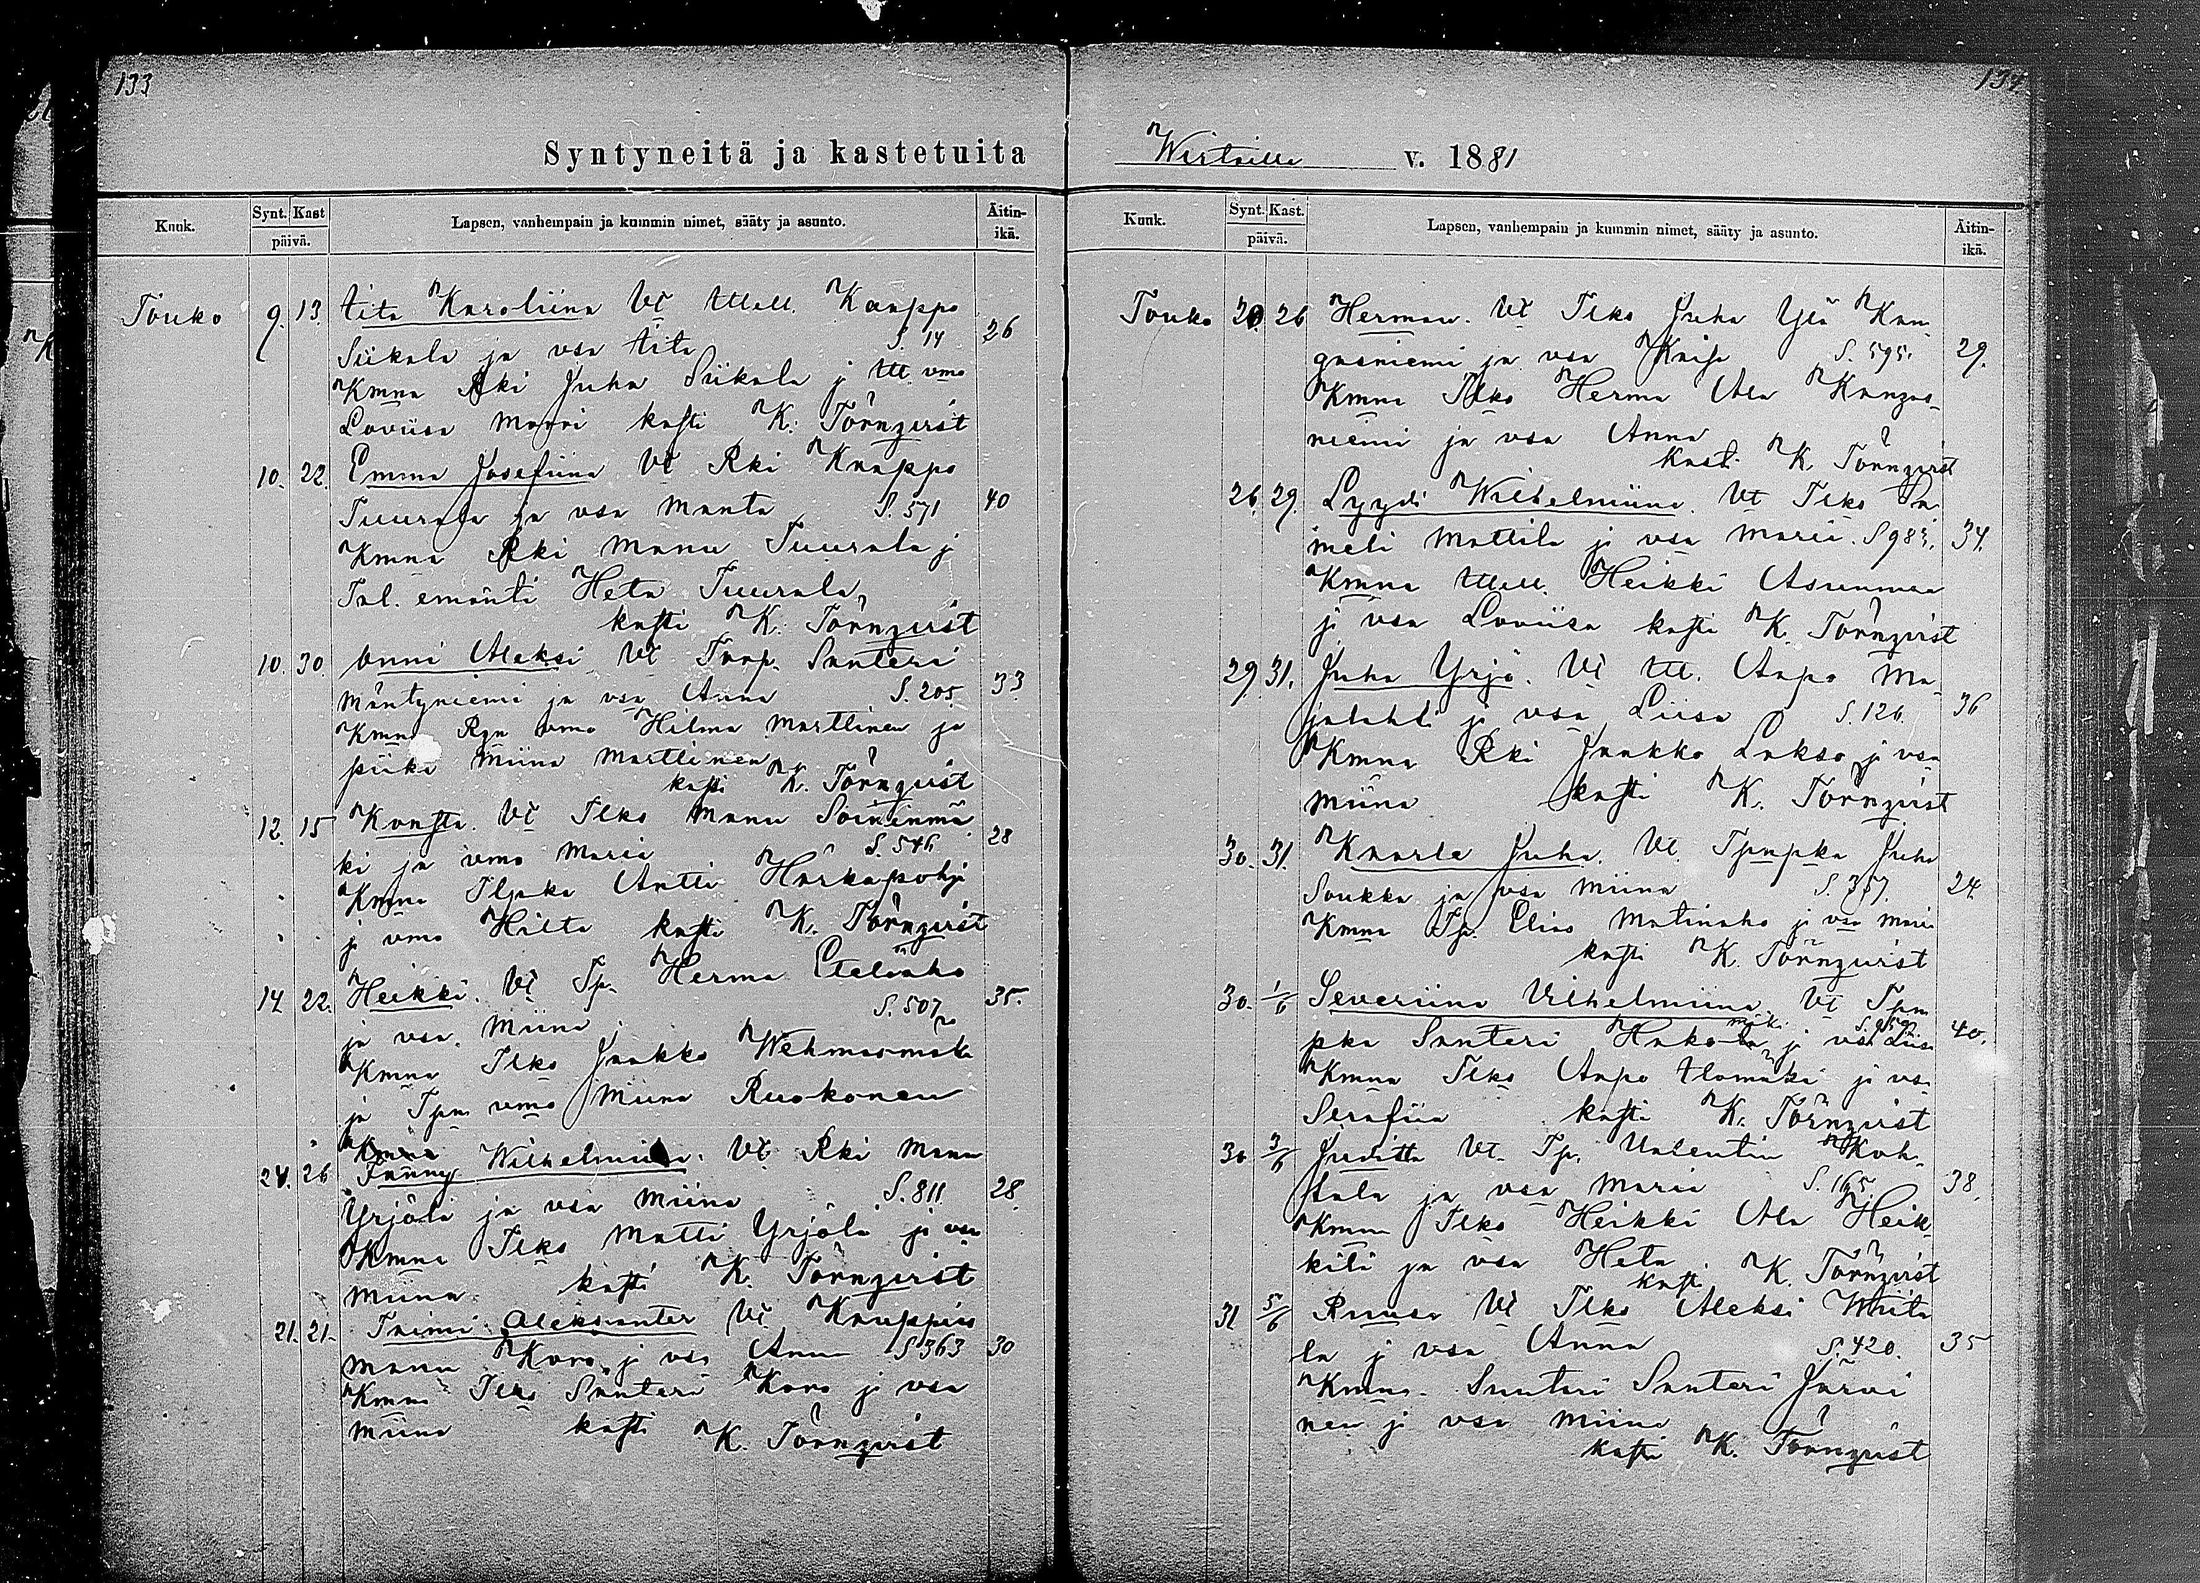 133
Syntyneitä ja kastetuita
Kuuk. Synt. Kast päivä. Lapsen, vanhempain ja kummin nimet, sääty ja asunto. Äitin-ikä.
Touko 9. 13. Aita Karoliina Vt Kaappo
Siikala ja vsa Aita S. 14 26
Kmna Rki Juha Siikala j vmo
Loviisa Maari kasti K. Törnqvist
10. 22. Emma Josefiina Vt Rki Kaappo
Tuurala ja vsa Manta S. 571 40
Kmna Rki Manu Tuurala j
Tal. emänti Heta Tuurala,
kasti K. Törnqvist
10. 30. Onni Aleksi Vt Torp. Santeri
Mäntyniemi ja vsa Anna S. 205. 33
Kmna Rgn vmo Hilma Marttinen ja
piika Miina Marttinen
kasti K. Törnqvist
12. 15 Konsta. Vt Ilks Manu Soininmä
ki ja vmo Maria S. 546 28
Kmna Antti Härkäpohj
j vmo Hilta kasti K. Törnqvist
14 22. Heikki. Vt Tp. Herma Eteläaho
ja vsa. Miina S. 507 35.
Kmna Ilks Jaakko Wehmasmäki
ja Tpm vmo Miina Ruokonen
24. 26 Fanny Wilhelmiina. Vt Rki Manu
Yrjölä ja vsa Miina S. 811 28.
Kmna Ilks Matti Yrjölä ja vsa
Miina kasti K. Törnqvist
21. 21. Taimi Aleksanter Vt Kauppias
Manu Koro j vsa Anna S 363 30
Kmna Ilks Santeri Koro j vsa
Miina kasti K. Törnqvist
134
Wirtailla v. 1881
Kuuk. Synt. Kast. päivä. Lapsen, vanhempain ja kummin nimet, sääty ja asunto. Äitin-ikä.
Touko 20 26 Herman. Vt Ilks Juha Ylä Kan
gasniemi ja vsa Kaisa S. 595. 29.
Kmna Ilks Herma Ala Kangas
niemi ja vsa Anna
kast. K. Törnqvist
26. 29. Lyydi Wilhelmiina. Vt Ilks Sa
meli Mattila j vsa Maria. S 983. 34.
Kmna Heikki Asunmaa
j vsa Loviisa kasti K. Törnqvist
29. 31. Juha Yrjö. Vt Aapo Ma
jalahti j vsa Liisa S. 126. 36
Kmna Rki Jaakko Lakso j vsa
Miina kasti K. Törnqvist
30. 31. Kaarle Juha. Vt. Juha
Soukka ja vsa Miina S. 357. 24
Kmna Tp. Elias Matinaho j vsa Maria
kasti K. Törnqvist
30. 1/6 Severiina Vilhelmiina Vt Tpm
pka Santeri Hakomäki j vsa Liisa 40.
Kmna Ilks Aapo Alamäki j vsa
Serafiia kasti K. Törnqvist
30 3/6 Juditta Vt. Tp. Valentin Koh
tala ja vsa Maria S. 165. 38.
Kmna Ilks Heikki Ala Heik
kilä ja vsa Heta
kasti K. Törnqvist
31 5/6 Ruusa Vt Ilks Aleksi Wiita
la j vsa Anna S. 420. 35
Kmna. Suutari Santeri Järvi
nen j vsa Miina
kasti K. Törnqvist